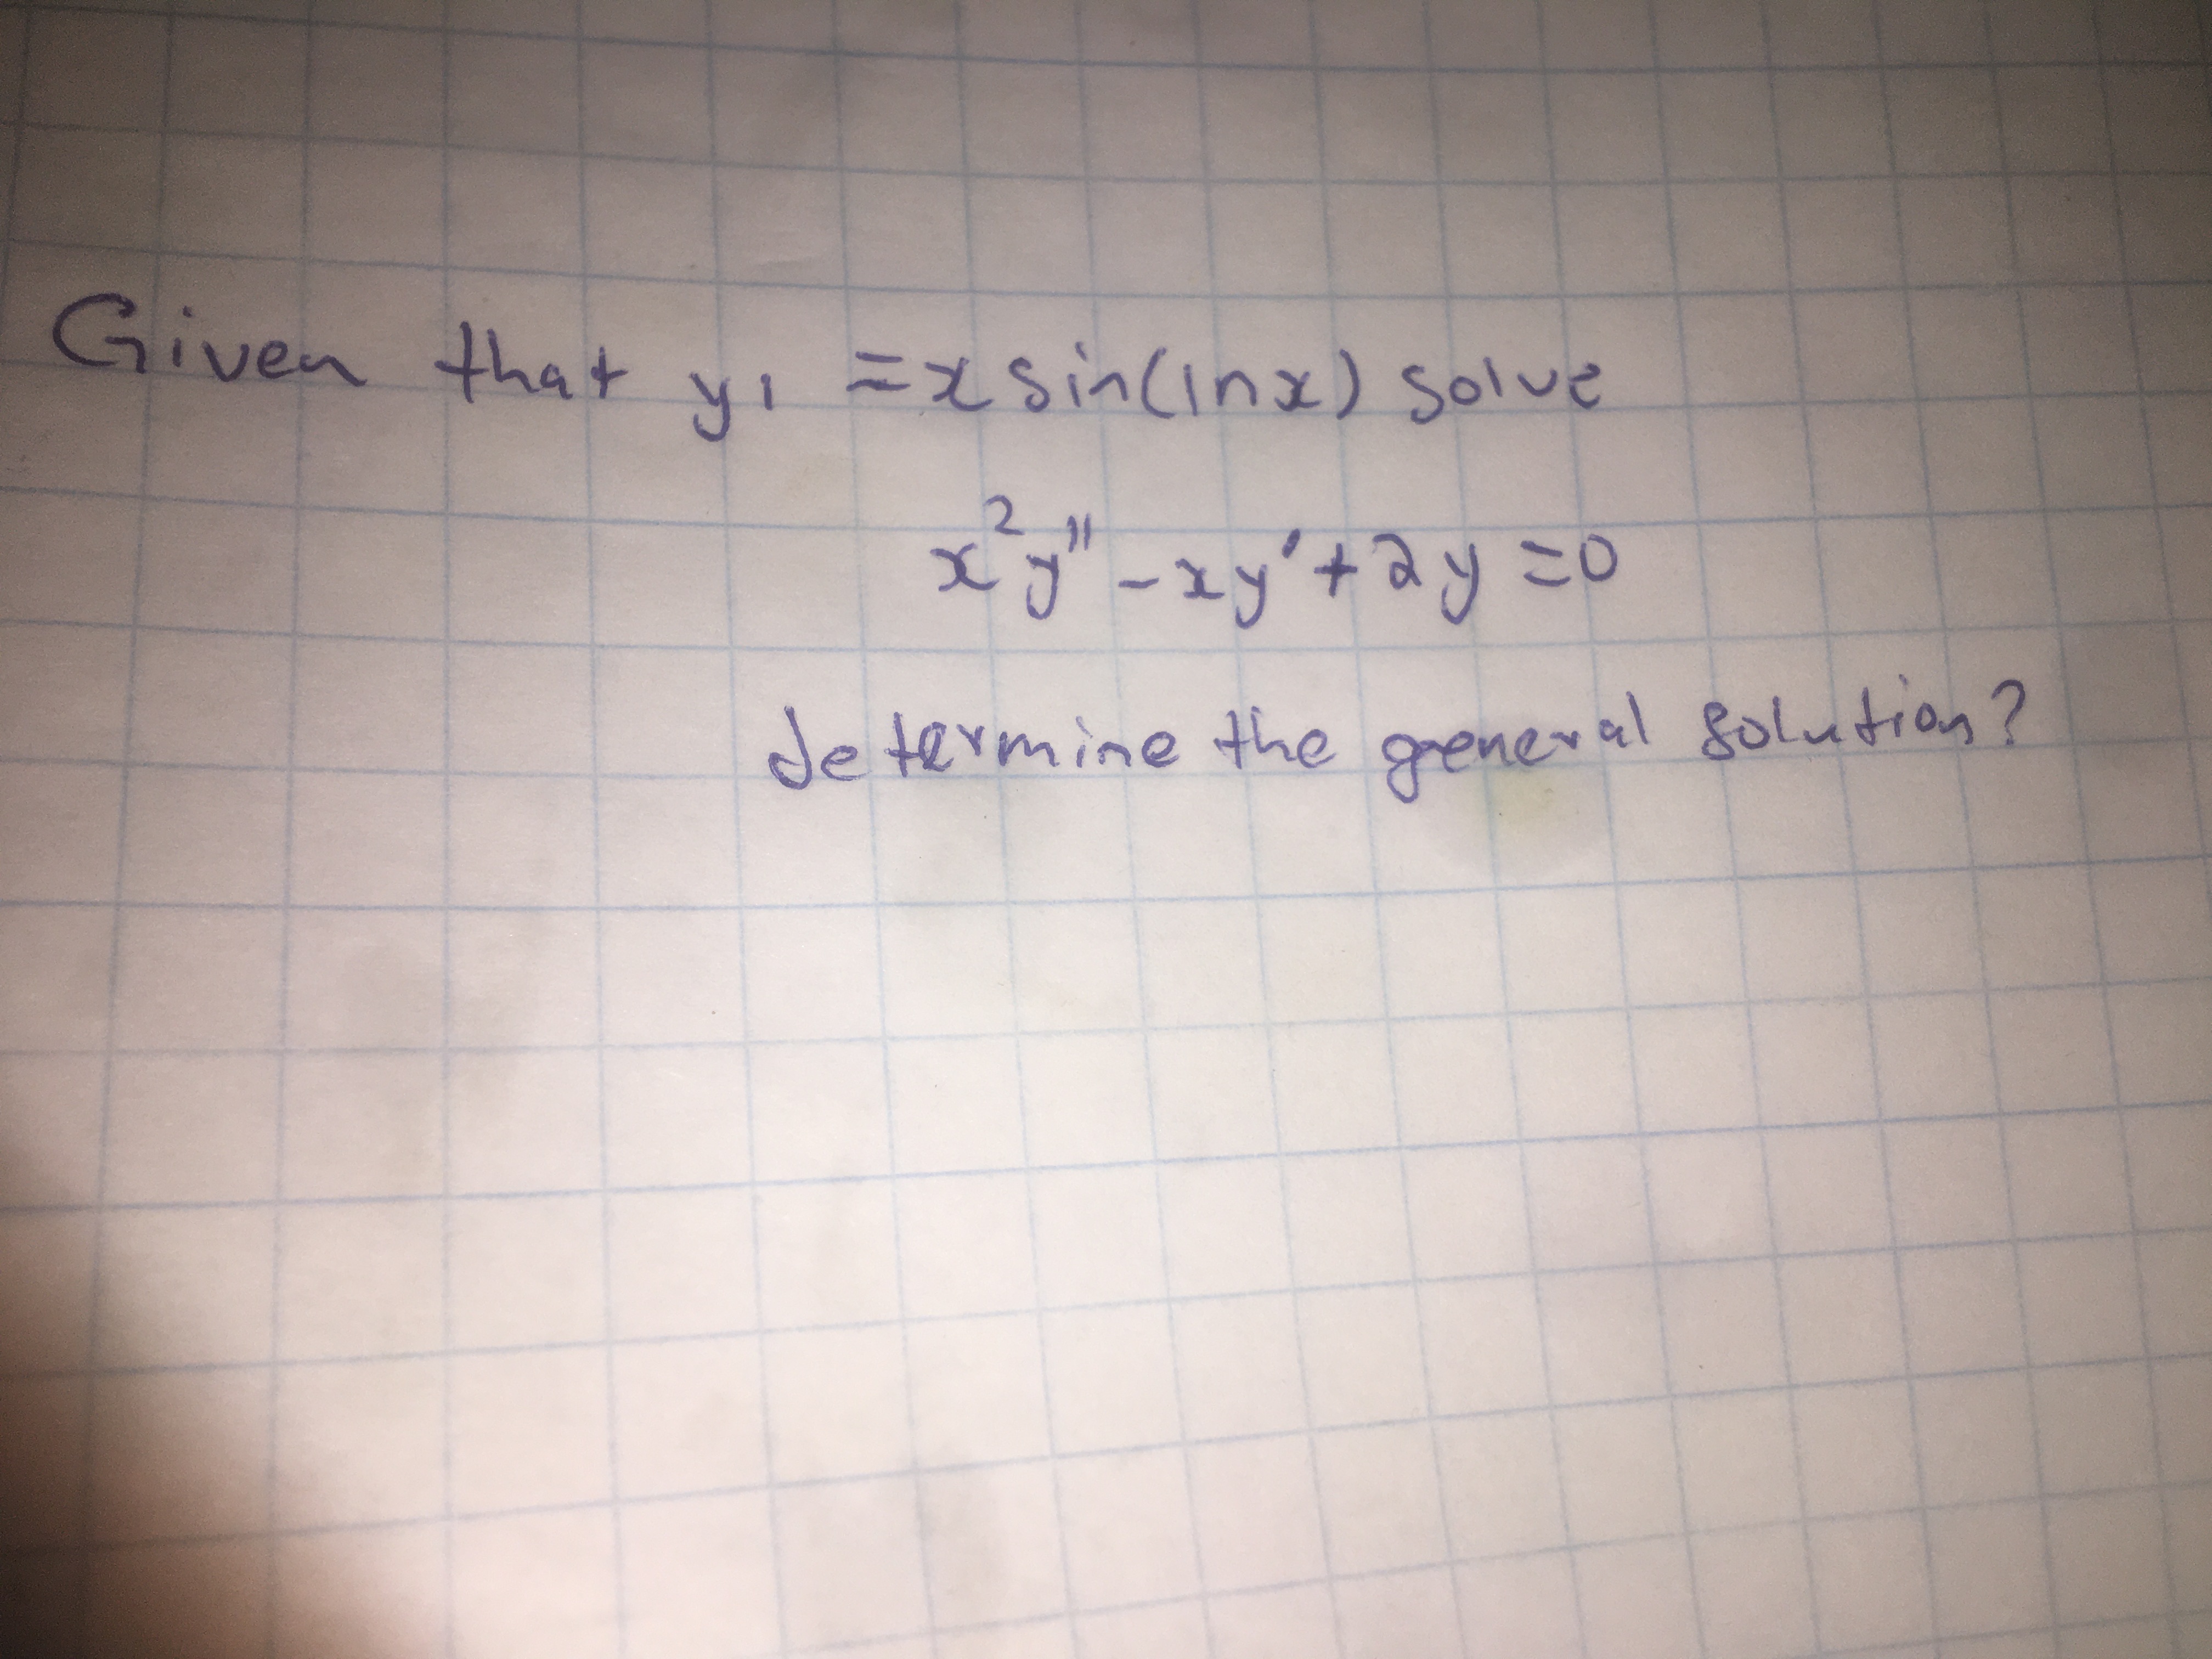 Given that y₁ = x sin(ln x) solve
x²y'' - xy' + 2y = 0
determine the general solution?